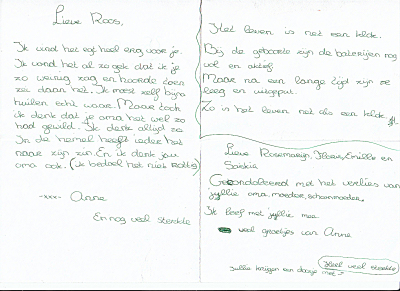 Lieve Roos,
Ik vind het egt heel erg voor je.
Ik vond het al zo gek dat ik je
zo weinig zag en hoorde toen
zei daan het. Ik moest zelf bijna
huilen echt waar. Maar toch
ik denk dat je oma het wel zo
had gewild. Ik denk altijd zo
In de hemel heeft ieder het
naar zijn zin. En ik denk jou
oma ook. (ik bedoel het niet rottig)
-xxx- Anne
En nog veel sterkte
Het leven is net een klok.
Bij de geboorte zijn de baterijen nog
vol en aktief.
Maar na een lange tijd zijn ze
leeg en uitgeput.
Zo is het leven net als een klok.
Lieve Rosemarijn, Floor, Emilie en
Saskia
Gecondoleerd met het verlies van
jullie oma, moeder, schoonmoeder.
Ik leef met jullie mee
veel groetjes van Anne
Heel veel sterkte
Jullie krijgen een doosje met